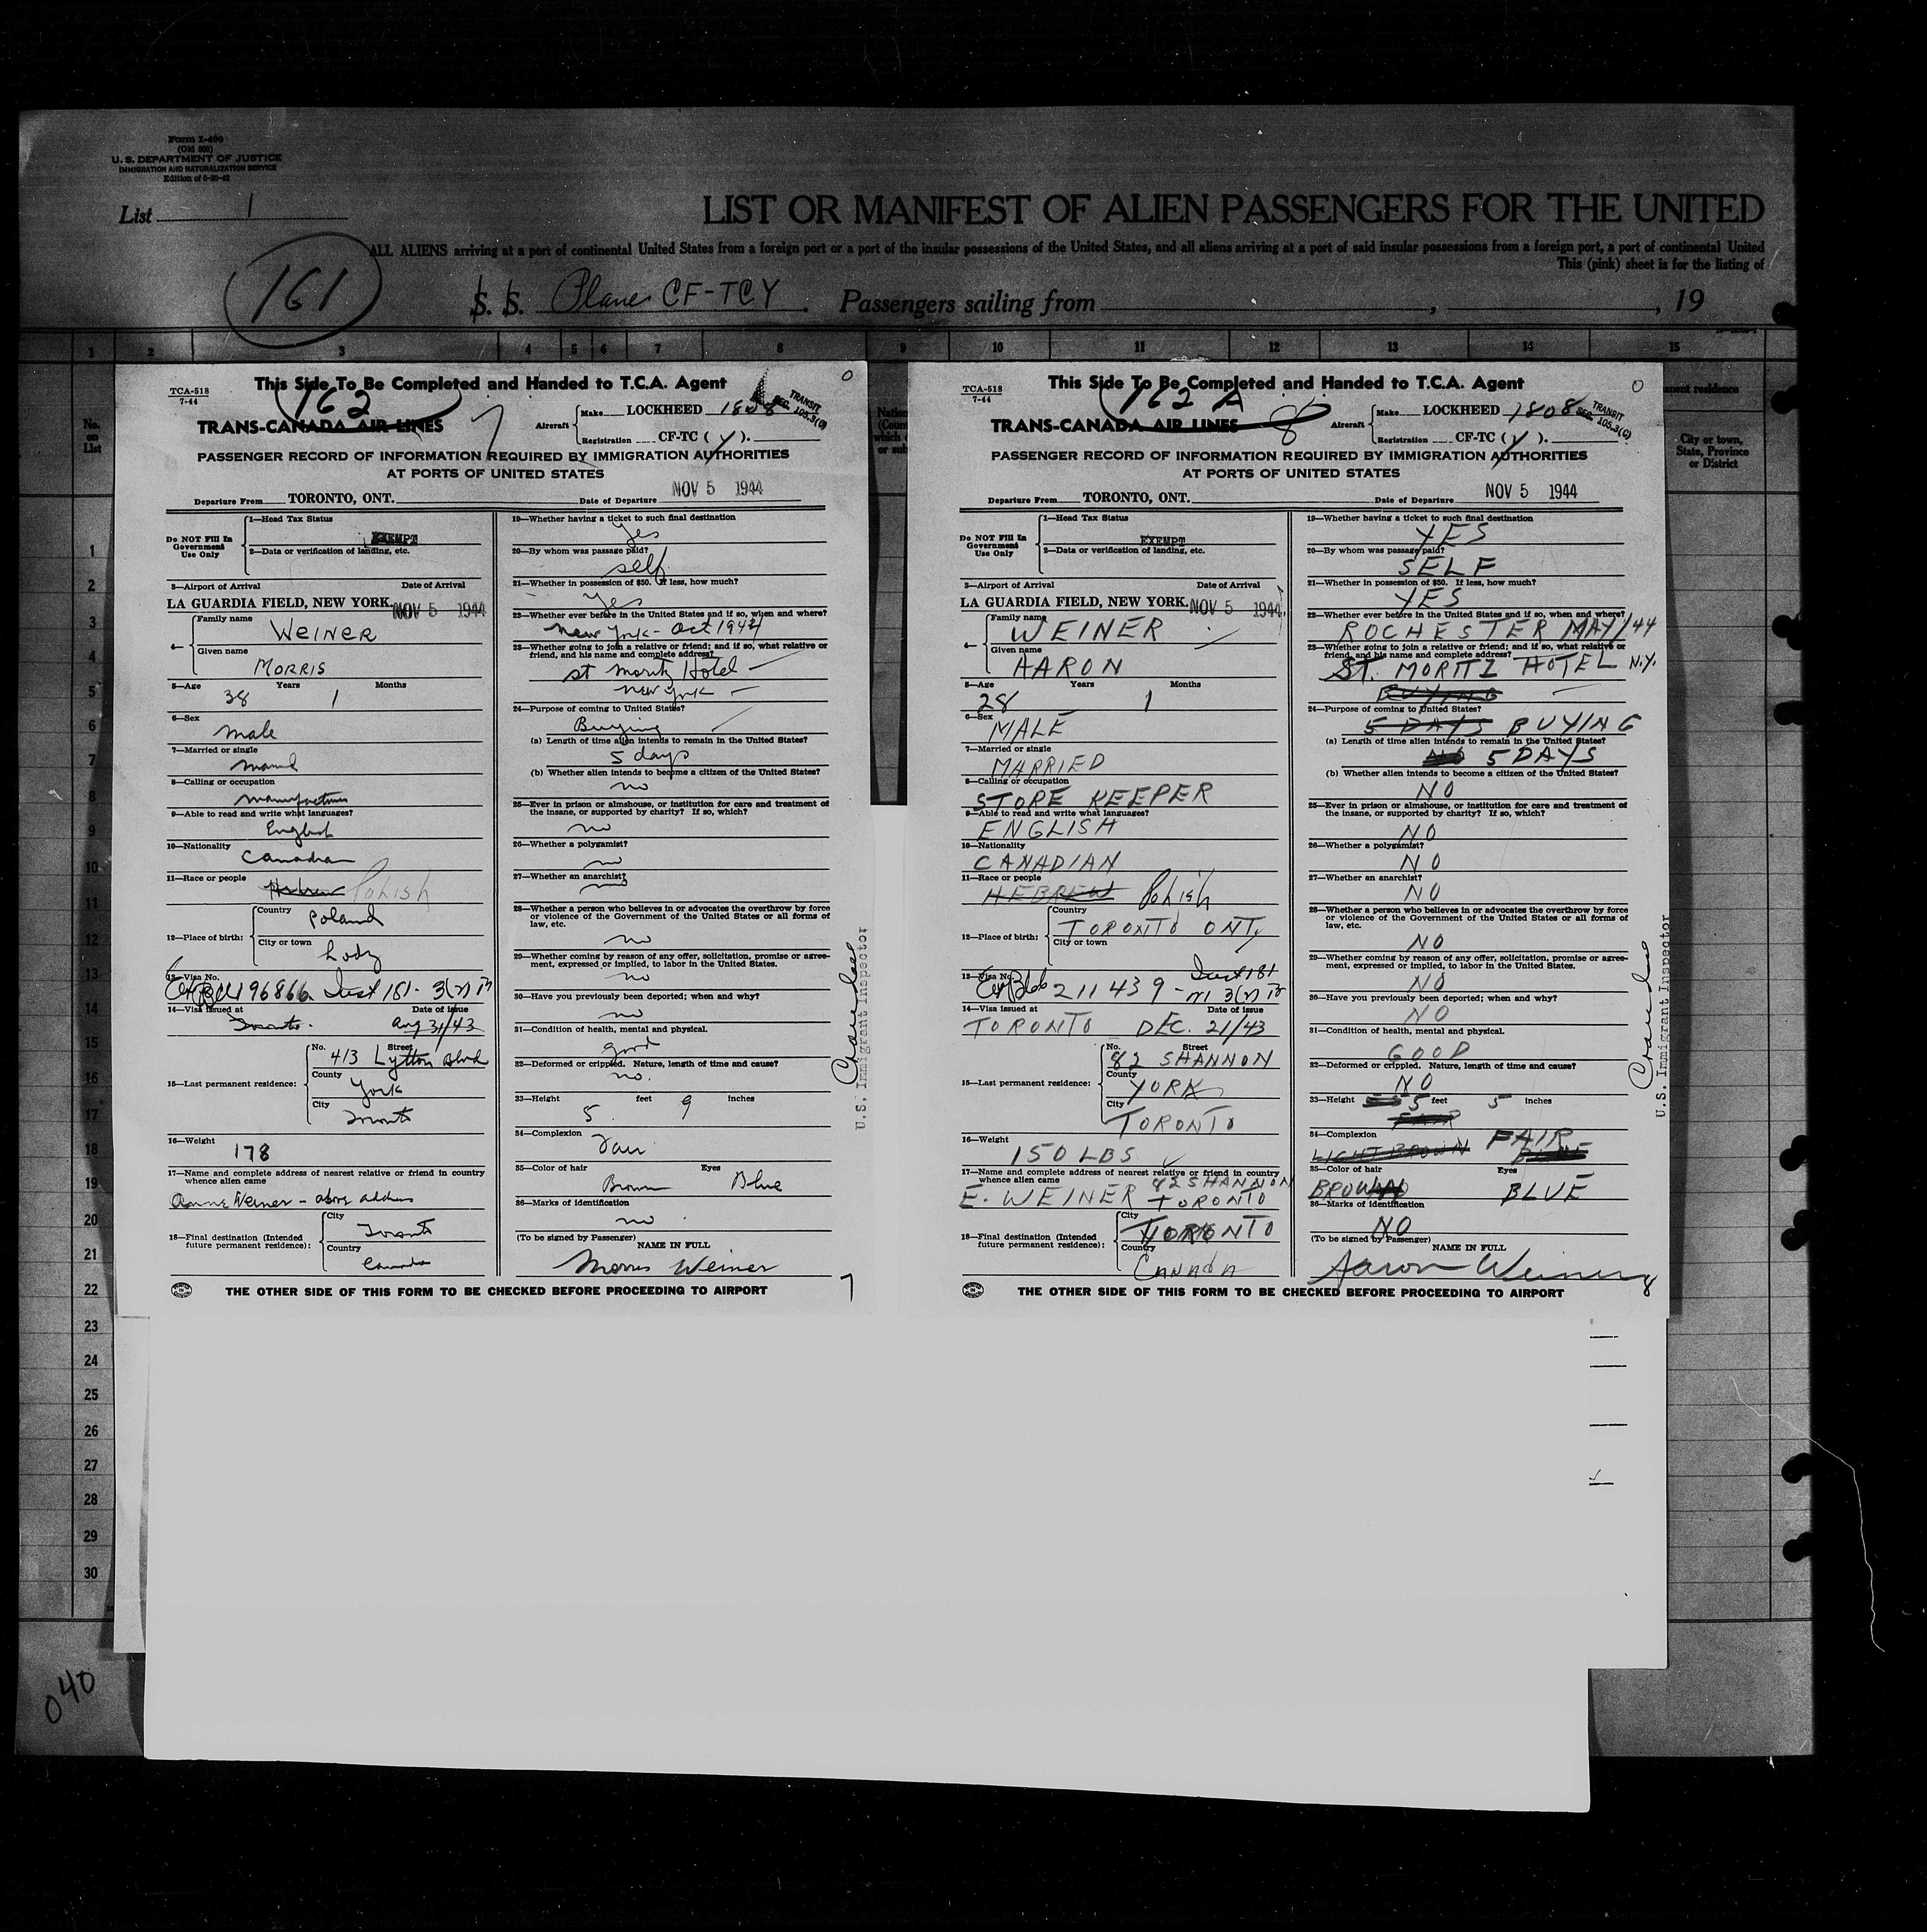 Form I-400
(Old 500)
U. S. DEPARTMENT OF JUSTICE
IMMIGRATION AND NATURALIZATION SERVICE
Edition of 6-20-42
List 1
LIST OR MANIFEST OF ALIEN PASSENGERS FOR THE UNITED
ALL ALIENS arriving at a port of continental United States from a foreign port or a port of the insular possessions of the United States, and all aliens arriving at a port of said insular possessions from a foreign port, a port of continental United
This (pink) sheet is for the listing of
161
S. S. Plane CF-TCY. Passengers sailing from , , 19
1 2 3 4 5 6 7 8 9 10 11 12 13 14 15
No.
on
List
City or town,
State, Province
or District
TCA-518
7-44
This Side To Be Completed and Handed to T.C.A. Agent
162
7
TRANS-CANADA AIR LINES
Aircraft
Make LOCKHEED 1808
Registration CF-TC ( Y ).
TRANSIT
SEC. 105.3(C)
PASSENGER RECORD OF INFORMATION REQUIRED BY IMMIGRATION AUTHORITIES
AT PORTS OF UNITED STATES
Departure From TORONTO, ONT. Date of Departure NOV 5 1944
Do NOT Fill In
Government
Use Only
1—Head Tax Status
EXEMPT
2—Data or verification of landing, etc.
3—Airport of Arrival Date of Arrival
LA GUARDIA FIELD, NEW YORK. NOV 5 1944
4— Family name
WEINER
Given name
MORRIS
5—Age Years Months
38 1
6—Sex
male
7—Married or single
8—Calling or occupation
manufacturer
9—Able to read and write what languages?
English
10—Nationality
Canadian
11—Race or people
Hebrew Polish
12—Place of birth:
Country
Poland
City or town
Lodz
13—Visa No.
196866
14—Visa issued at Date of issue
Toronto. Aug 31/43
15—Last permanent residence:
No. Street
413 Lytton Blvd
County
York
City
Toronto
16—Weight
178
17—Name and complete address of nearest relative or friend in country
whence alien came
Anne Weiner - above address
18—Final destination (Intended
future permanent residence):
City
Toronto
Country
Canada
19—Whether having a ticket to such final destination
Yes
20—By whom was passage paid?
self
21—Whether in possession of $50. If less, how much?
Yes
22—Whether ever before in the United States and if so, when and where?
New York - Oct 1944
23—Whether going to join a relative or friend; and if so, what relative or
friend, and his name and complete address?
St Moritz Hotel -
New York -
24—Purpose of coming to United States?
Buying
(a) Length of time alien intends to remain in the United States?
5 days
(b) Whether alien intends to become a citizen of the United States?
no
25—Ever in prison or almshouse, or institution for care and treatment of
the insane, or supported by charity? If so, which?
no
26—Whether a polygamist?
no
27—Whether an anarchist?
no
28—Whether a person who believes in or advocates the overthrow by force
or violence of the Government of the United States or all forms of
law, etc.
no
29—Whether coming by reason of any offer, solicitation, promise or agree-
ment, expressed or implied, to labor in the United States.
no
30—Have you previously been deported; when and why?
no
31—Condition of health, mental and physical.
good
32—Deformed or crippled. Nature, length of time and cause?
no.
33—Height feet inches
5 9
34—Complexion
Fair
35—Color of hair Eyes
Brown Blue
36—Marks of identification
no
(To be signed by Passenger)
NAME IN FULL
Morris Weiner
7
THE OTHER SIDE OF THIS FORM TO BE CHECKED BEFORE PROCEEDING TO AIRPORT
U.S. Immigrant Inspector
TCA-518
7-44
This Side To Be Completed and Handed to T.C.A. Agent
162 A
8
TRANS-CANADA AIR LINES
Aircraft
Make LOCKHEED 1808
Registration CF-TC ( Y ).
TRANSIT
SEC. 105.3(C)
PASSENGER RECORD OF INFORMATION REQUIRED BY IMMIGRATION AUTHORITIES
AT PORTS OF UNITED STATES
Departure From TORONTO, ONT. Date of Departure NOV 5 1944
Do NOT Fill In
Government
Use Only
1—Head Tax Status
EXEMPT
2—Data or verification of landing, etc.
3—Airport of Arrival Date of Arrival
LA GUARDIA FIELD, NEW YORK. NOV 5 1944
4— Family name
WEINER
Given name
AARON
5—Age Years Months
28 1
6—Sex
MALE
7—Married or single
MARRIED
8—Calling or occupation
STORE KEEPER
9—Able to read and write what languages?
ENGLISH
10—Nationality
CANADIAN
11—Race or people
HEBREW Polish
12—Place of birth:
Country
TORONTO ONT,
City or town
13—Visa No.
211439
14—Visa issued at Date of issue
TORONTO DEC. 21/43
15—Last permanent residence:
No. Street
82 SHANNON
County
YORK
City
TORONTO
16—Weight
150 LBS
17—Name and complete address of nearest relative or friend in country
whence alien came 82 SHANNON
E. WEINER TORONTO
18—Final destination (Intended
future permanent residence):
City
TORONTO
Country
CANADA
19—Whether having a ticket to such final destination
YES
20—By whom was passage paid?
SELF
21—Whether in possession of $50. If less, how much?
YES
22—Whether ever before in the United States and if so, when and where?
ROCHESTER MAY/44
23—Whether going to join a relative or friend; and if so, what relative or
friend, and his name and complete address?
ST. MORITZ HOTEL N.Y.
BUYING
24—Purpose of coming to United States?
5 DAYS BUYING
(a) Length of time alien intends to remain in the United States?
NO 5 DAYS
(b) Whether alien intends to become a citizen of the United States?
NO
25—Ever in prison or almshouse, or institution for care and treatment of
the insane, or supported by charity? If so, which?
NO
26—Whether a polygamist?
NO
27—Whether an anarchist?
NO
28—Whether a person who believes in or advocates the overthrow by force
or violence of the Government of the United States or all forms of
law, etc.
NO
29—Whether coming by reason of any offer, solicitation, promise or agree-
ment, expressed or implied, to labor in the United States.
NO
30—Have you previously been deported; when and why?
NO
31—Condition of health, mental and physical.
GOOD
32—Deformed or crippled. Nature, length of time and cause?
NO
33—Height 5 feet 5 inches
FAIR
34—Complexion FAIR
LIGHT BROWN
35—Color of hair Eyes
BROWN BLUE
36—Marks of identification
NO
(To be signed by Passenger)
NAME IN FULL
Aaron Weiner
8
THE OTHER SIDE OF THIS FORM TO BE CHECKED BEFORE PROCEEDING TO AIRPORT
U.S. Immigrant Inspector
1
2
3
4
5
6
7
8
9
10
11
12
13
14
15
16
17
18
19
20
21
22
23
24
25
26
27
28
29
30
040